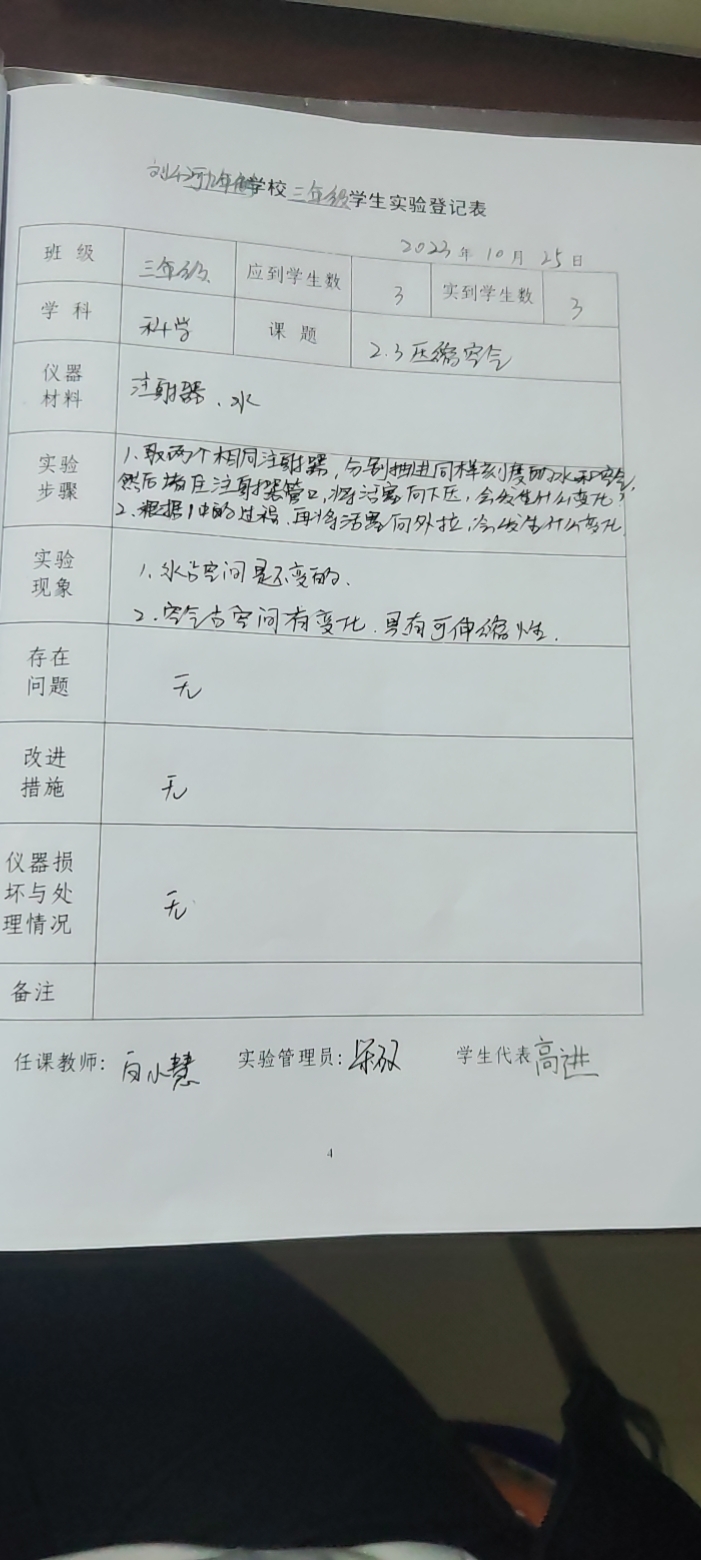 学校三年级学生实验登记表
2023年10月25日
班级 三年级 应到学生数 3 实到学生数 3
学科 科学 课题 2.3压缩空气
仪器材料 注射器、水
实验步骤
1.取两个相同注射器，分别抽进同样刻度的水和空气，
然后堵住注射器管口，将活塞向下压，会发生什么变化？
2.根据1中的过程，再将活塞向外拉，会发生什么变化
实验现象
1.水占空间是不变的.
2.空气占空间有变化.具有可伸缩性.
存在问题 无
改进措施 无
仪器损坏与处理情况 无
备注
任课教师：白小慧 实验管理员： 学生代表 高进
4